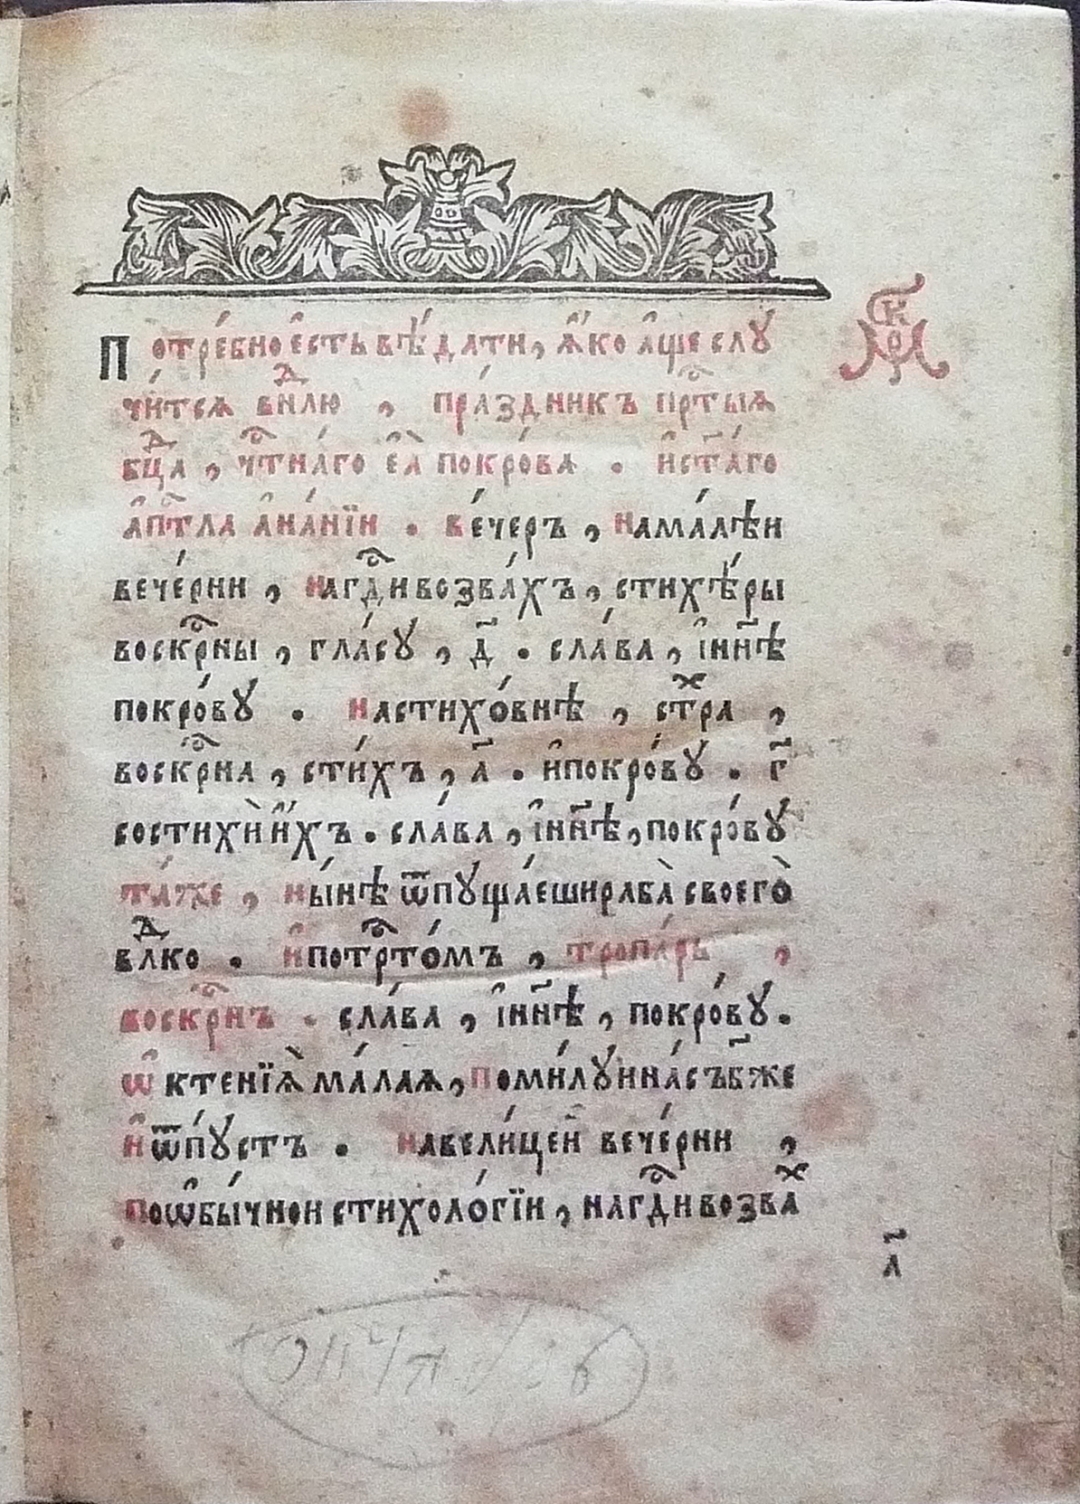 Потре́бно є҆́сть вѣ́дати, ꙗ҆́ко а҆́ще слꙋ
чи́тсѧ внⷣлю , пра́здникъ прⷭ҇тыѧ
бцⷣа , чⷭ҇тна́го є҆ѧ̀ покро́ва . и҆ ст҃а́го
а҆пⷭ҇тла а҆на́нїи . ве́черъ , нама́лѣи
вече́рни , нагдⷭ҇и возва́хъ , стихѣ́ры
воскрⷭ҇ны , гла́сꙋ , д҃ . сла́ва , і҆нн҃ѣ
покро́вꙋ . настихо́внѣ , стрⷯа ,
воскрⷭ҇на , сти́хъ , а҃ . и҆покро́вꙋ . г҃
состихѝ и҆́хъ . сла́ва , і҆нн҃ѣ , покро́вꙋ
та́же , ны́нѣ ѿпꙋща́еши раба̀ своего̀
влⷣко . и҆потрⷭ҇то́мъ , тропа́рь ,
воскрⷭ҇нъ . сла́ва , і҆нн҃ѣ , покро́вꙋ .
ѡ҆ктенїѧ̀ ма́лаѧ , поми́лꙋи на́съ б҃же
и҆ѿпꙋ́стъ . навели́цеи вече́рни ,
поѡ҆бы́чнои стихоло́гїи , нагдⷭ҇и возваⷯ
а҃